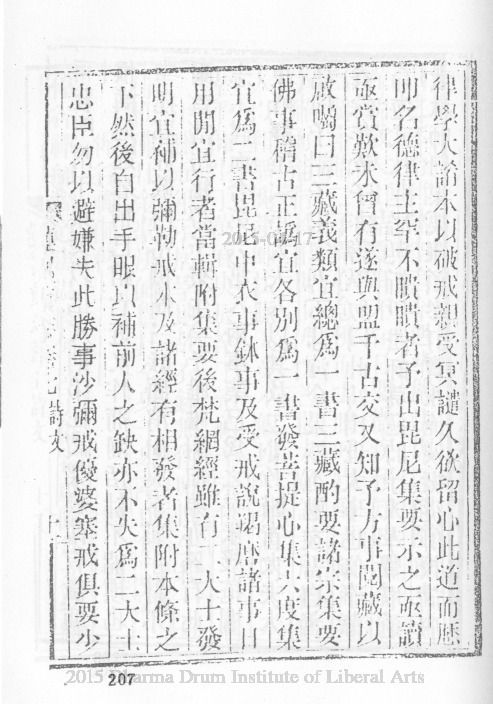 律學大諭本以破戒親受冥譴久欲留心此道而歷
叩名德律主罕不瞶瞶者予出毘尼集要示之亟讀
亟賞歎未曾有遂與盟千古交又知予方事閱藏以
啟囑曰三藏義類宜總爲一書三藏酌要諸宗集要
佛事稽古正譌宜各別爲一書發菩提心集六度集
宜爲二書毘尼中衣事鉢事及受戒說羯磨諸事日
用閒宜行者當輯附集要後梵網經雖有二大士發
明宜補以彌勒戒本及諸經有相發者集附本條之
下然後自出手眼以補前人之缺亦不失爲二大士
忠臣勿以避嫌失此勝事沙彌戒優婆塞戒俱要少
詩文
十一
207
2015-04-17
2015 Dharma Drum Institute of Liberal Arts